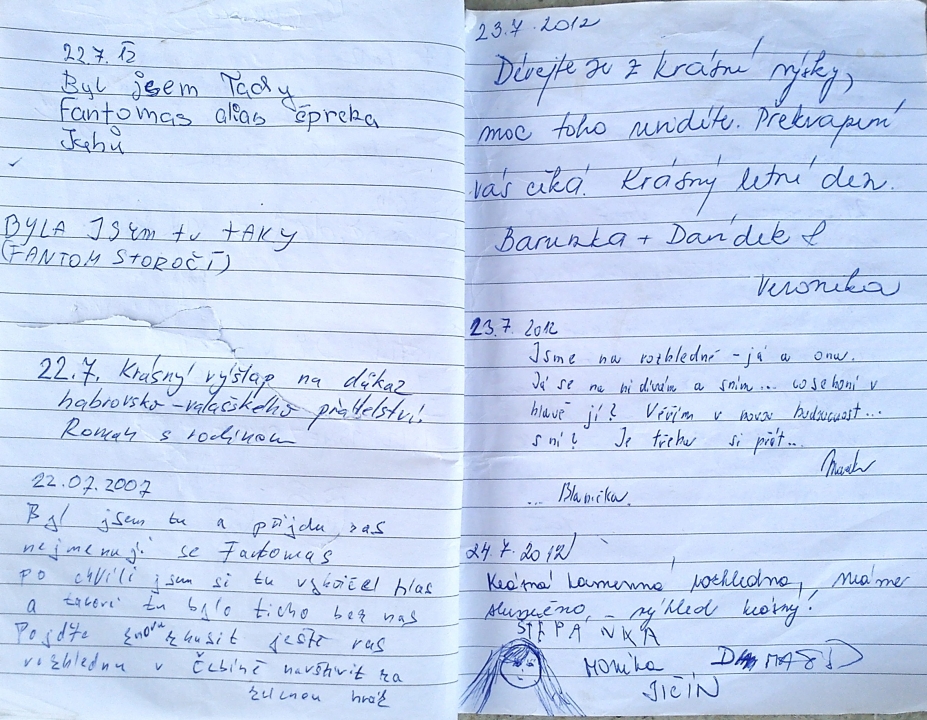 22.7. 12
Byl jsem Tady
Fantomas alias čpreka
Jaků
BYLA JSEm tu tAKY
(FANTOM StOROČÍ)
22.7. Krásný výstap na důkaz
habrovsko-valašského přáttelství.
Roman s rodinou
22.07.2007
Byl jsem tu a přijdu zas
nejmenuji se Fantomas
po chvíli jsem si tu vykřičel hlas
a takové tu bylo ticho bez nás
Pojďte znova zkusit ještě ras
rozhlednu v Čebíně navštívit za
zelenou hráz
23.7.2012
Dívejte se z krásné výšky,
moc toho uvidíte. Překvapení
vás čeká. Krásný letní den.
Barunka + Daňdek &
Veronika
23.7. 2012
Jsme na rozhledně - já a ona.
Já se na ni dívám a sním... co se honí v
hlavě jí? Věřím v novou budoucnost...
s ní! Je třeba si přát...
... Blanička.
24.7.2012
Krásná kamenná rozhledna, máme
slunečno, výhled krásný!
ŠTĚPÁNKA
MONika
JIČÍN